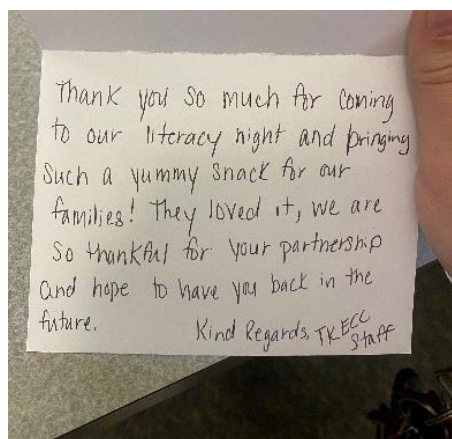 Thank you so much for coming
to our literacy night and bringing
such a yummy snack for our
families! They loved it, we are
so thankful for your partnership
and hope to have you back in the
future.
Kind Regards, TKECC
Staff